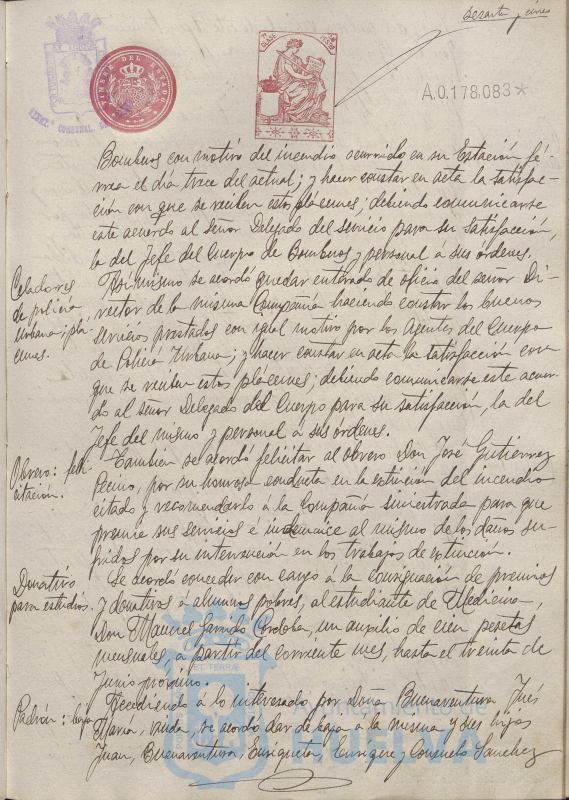 Sesenta y cinco
TIMBRE DEL ESTADO
CLASE
A.0.178.083*
Bomberos con motivo del incendio ocurrido, en su Estación fé-
rrea el día trece del actual; y hacer constar en acta la satisfac-
ción con que se reciben estos plácemes, debiendo comunicarse
este acuerdo al señor Delegado del servicio para su satisfacción,
la del Jefe del Cuerpo de Bomberos y personal á sus órdenes.
Celadores
de policia
urbana: plá-
cemes.
Asimismo se acordó quedar enterado de oficio del señor Di-
rector de la misma Compañía haciendo constar los buenos
servicios prestados con igual motivo por los Agentes del Cuerpo
de Policía Urbana; y hacer constar en acta la satisfacción con
que se reciben estos plácemes; debiendo comunicarse este acuer-
do al señor Delegado del Cuerpo para su satisfacción, la del
Jefe del mismo y personal a sus órdenes.
Obrero: feli-
citación.
También se acordó felicitar al obrero Don José Gutiérrez
por su honrosa conducta en la extinción del incendio
citado y recomendarlo á la Compañía siniestrada para que
premie sus servicios é indemnice al mismo de los daños su-
fridos por su intervención en los trabajos de extinción.
Donativo
para estudios.
Se acordó conceder con cargo á la consignación de premios
y donativos á alumnos pobres, al estudiante de Medicina,
Don Manuel Garrido Córdoba, un auxilio de cien pesetas
mensuales, á partir del corriente mes, hasta el treinta de
Junio próximo.
Padrón: baja
Accediendo á lo interesado por Doña Buenaventura Inés
María, viuda, se acordó dar de baja á la misma y sus hijos
Juan, Buenaventura, Enriqueta, Enrique y Consuelo Sanchez
Ayuntamiento
HUELVA